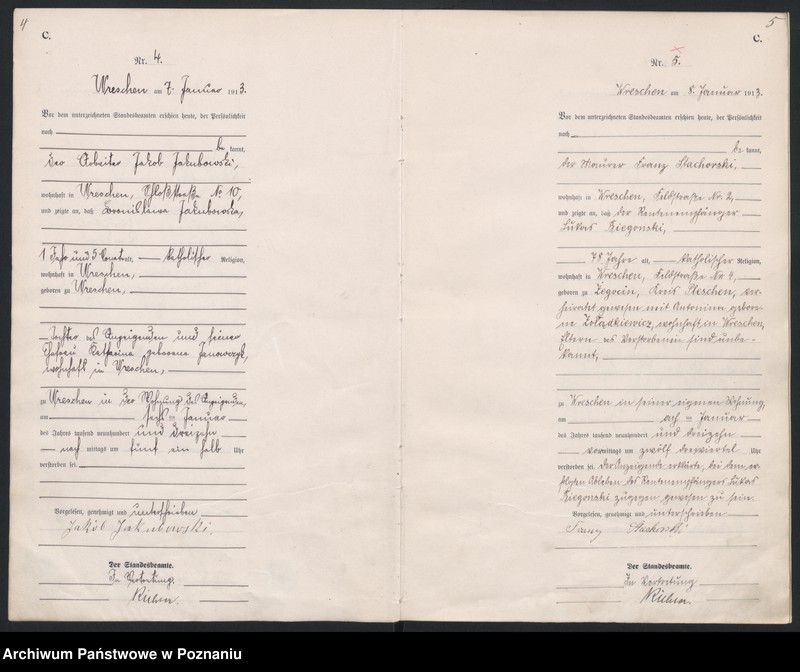 4
C.
Nr. 4.
Wreschen am 7. Januar 1913.
Vor dem unterzeichneten Standesbeamten erschien heute, der Persönlichkeit
nach
be kannt,
der Arbeiter Jakob Jakubowski,
wohnhaft in Wreschen, Schloßstraße Nr. 10,
und zeigte an, daß Bronislawa Jakubowska,
1 Jahr und 5 Monat alt, katholischer Religion,
wohnhaft in Wreschen,
geboren zu Wreschen,
Tochter des Anzeigenden und seiner
Ehefrau Katharina geborene
wohnhaft in Wreschen,
zu Wreschen in der Wohnung des Anzeigenden,
am Januar
des Jahres tausend neunhundert und dreizehn
nach mittags um fünf ein halb Uhr
verstorben sei.
Vorgelesen, genehmigt und unterschrieben
Jakób Jakubowski.
Der Standesbeamte.
In Vertretung.
5
C.
Nr. 5.
Wreschen am 8. Januar 1913.
Vor dem unterzeichneten Standesbeamten erschien heute, der Persönlichkeit
nach
be kannt,
der Maurer Franz Stachorski,
wohnhaft in Wreschen, Feldstraße Nr. 2,
und zeigte an, daß der Rentenempfänger
Lukas Biegonski,
78 Jahre alt, katholischer Religion,
wohnhaft in Wreschen, Feldstraße Nr. 4,
geboren zu Zegocin, Kreis Pleschen, ver-
heiratet gewesen mit Antonina gebore-
ne Zoladkiewicz, wohnhaft in Wreschen,
Eltern des Verstorbenen sind unbe-
kannt,
zu Wreschen in seiner eigenen Wohnung,
am acht Januar
des Jahres tausend neunhundert und dreizehn
vormittags um zwölf dreiviertel Uhr
verstorben sei. Der Anzeigende erklärte, bei dem er-
folgten Ableben des Rentenempfängers Lukas
Biegonski zugegen gewesen zu sein.
Vorgelesen, genehmigt und unterschrieben
Franz Stachorski
Der Standesbeamte.
In Vertretung
Archiwum Państwowe w Poznaniu